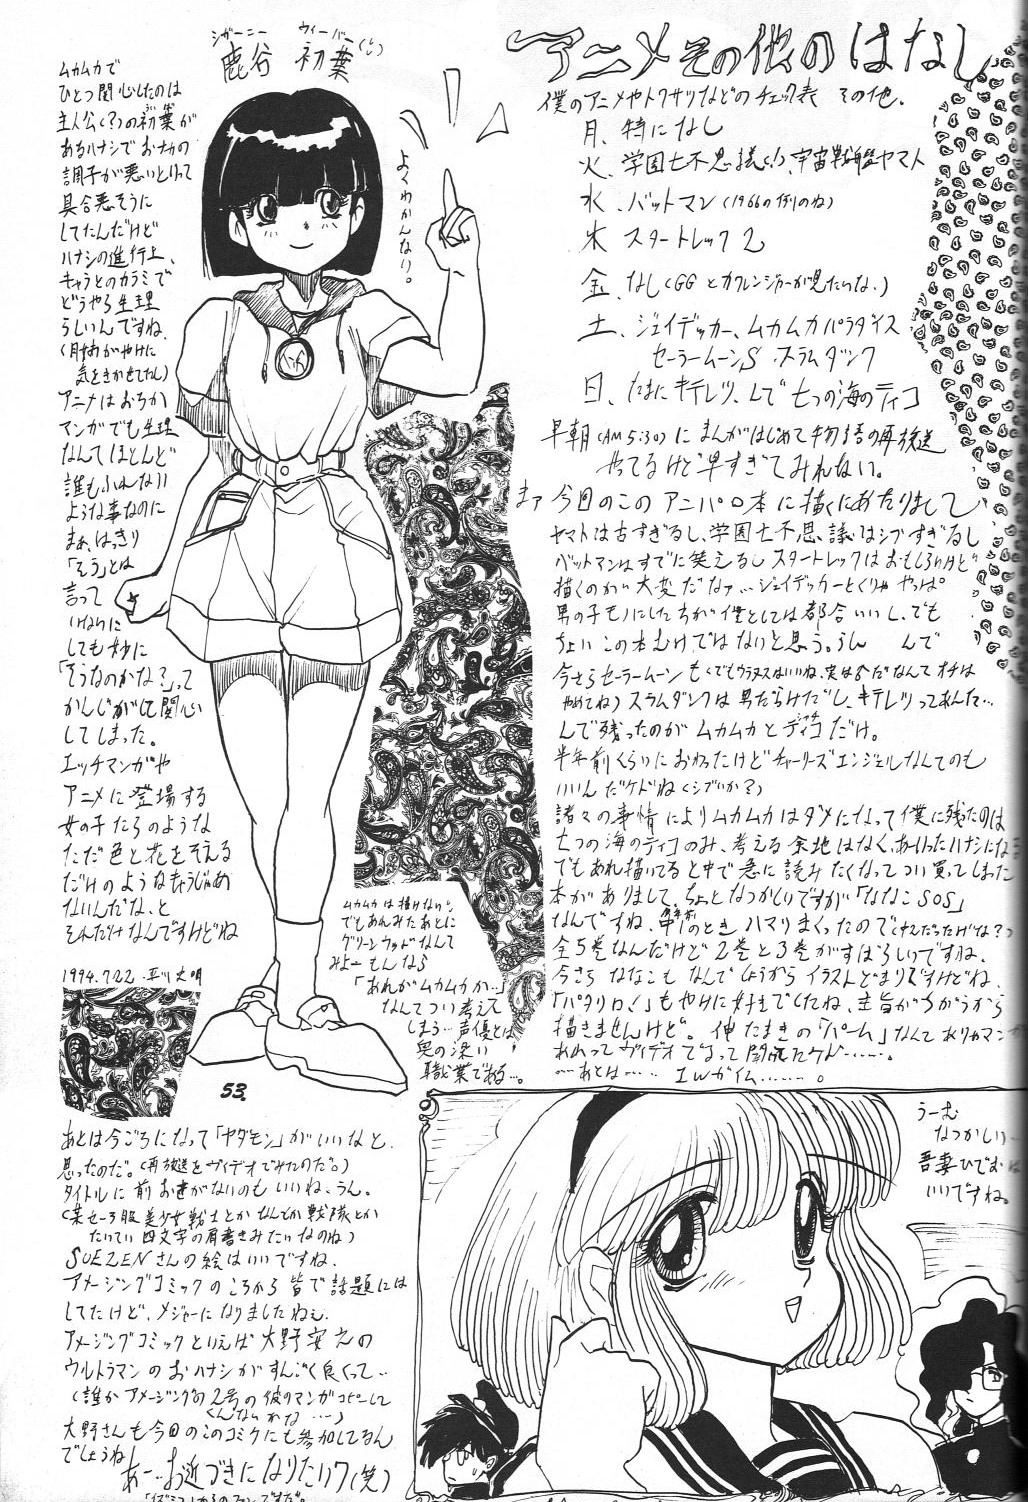 アニメその他のはなし
僕のアニメやトクサツなどのチェック表 その他.
月、特になし
火、学園七不思議(!)、宇宙戦艦ヤマト
水、バットマン(1966の例のね)
木 スタートレック2
金、なし(GGとカクレンジャーが見たいな.)
土、ジェイデッカー、ムカムカパラダイス
セーラームーンS.スラムダンク
日、たまにキテレツ、んで七つの海のティコ
早朝(AM5:30)にまんがはじめて物語の再放送
やってるけど早すぎてみれない。
まァ今回のこのアニパロ本に描くにあたりまして
ヤマトは古すぎるし、学園七不思議はシブすぎるし
バットマンはすでに笑えるしスタートレックはおもしろいけど
描くのが大変だなァ…ジェイデッカーとくりゃやっぱ
男の子モノにした方が僕としては都合いいし、でも
ちょいこの本むけではないと思う。うん んで
今さらセーラームーンも(でもウラヌスはいいね、実は♂だなんてオチは
やめてね)スラムダンクは男だらけだし、キテレツってあんた…
んで残ったのがムカムカとティコだけ。
半年前くらいにおわったけどチャーリーズエンジェルなんてのも
いいんだケドね(シブいか?)
諸々の事情によりムカムカはダメになって僕に残ったのは
七つの海のティコのみ、考える余地はなく、あーいったハナシにな
でもあれ描いてると中で急に読みたくなってつい買ってしまった
本がありまして、ちょとなつかしいですが「ななこSOS」
なんですね、のときハマりまくったので
全5巻なんだけど2巻と3巻がすばらしいですね.
今さらななこもなんでしょうからイラストどまりですけどね.
「パタリロ!」もやけに好きでしたね、主旨がちがうから
描きませんけど。伸たまきの「パーム」なんてありゃマンガ
あとは……
鹿谷 初葉
シカーニー
ウィーバー
よくわかんない。
ムカムカで
ひとつ関心したのは
主人公(?)の初葉が
あるハナシでおナカの
調子が悪いといって
具合悪そうに
してたんだけど
ハナシの進行上、
キャラとのカラミで
どうやら生理
らしいんですね.
気をきかせてたし)
アニメはおろか
マンガでも生理
なんてほとんど
誰もふれない
ような事なのに
まぁ、はっきり
「そう」とは
言って
いないに
しても妙に
「そうなのかな?」って
かんじがして関心
してしまった。
エッチマンガや
アニメに登場する
女の子たちのような
ただ色と花をそえる
だけのようなキャラじゃあ
ないんだな、と
それだけなんですけどね
1994.7.22.
ムカムカは描けない。
でもあれみたあとに
グリーンウッドなんて
みよーもんなら
「あれがムカムカか…」
なんてつい考えて
しまう…声優とは
奥の深い
職業であるな…。
53.
あとは今ごろになって「ヤダモン」がいいなと.
思ったのだ。(再放送をヴィデオでみたのだ。)
タイトルに前おきがないのもいいね、うん。
(某セーラ服美少女戦士とかなんでか戦隊とか
たいてい四文字の肩書きみたいなのね)
SUEZENさんの絵はいいですね.
アメージングコミックのころから皆で話題には
してたけど、メジャーになりましたねぇ.
アメージングコミックといえば大野安之の
ウルトラマンのおハナシがすんごく良くって…
(誰かアメージングの2号の彼のマンガコピーして
くんないかな…)
大野さんも今回のこのコミケにも参加してるん
でしょうね
あー…お近づきになりたいワ(笑)
うーむ
なつかしい…
吾妻ひでおは
いいですね。